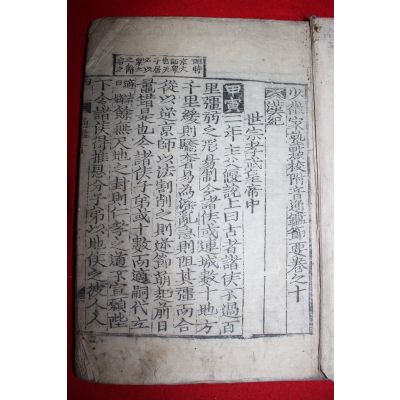 京大
師衆
也天
子居
必以
衆大
之辭
言之
少微家塾點校附音通鑑節要卷之十
漢紀
世宗孝武皇帝中
甲寅三年主父偃說上曰古者諸侯不過百
里彊弱之形易制今諸侯或連城數十地方
千里緩則驕奢易爲淫亂急則阻其彊而合
從以逆京師以法割削之則逆節萌起前日
鼂錯是也今諸侯子弟或十數而適嗣代立
餘無尺地之封則仁孝之道不宣願陛
下令諸侯得推恩分子弟以地侯之彼人人